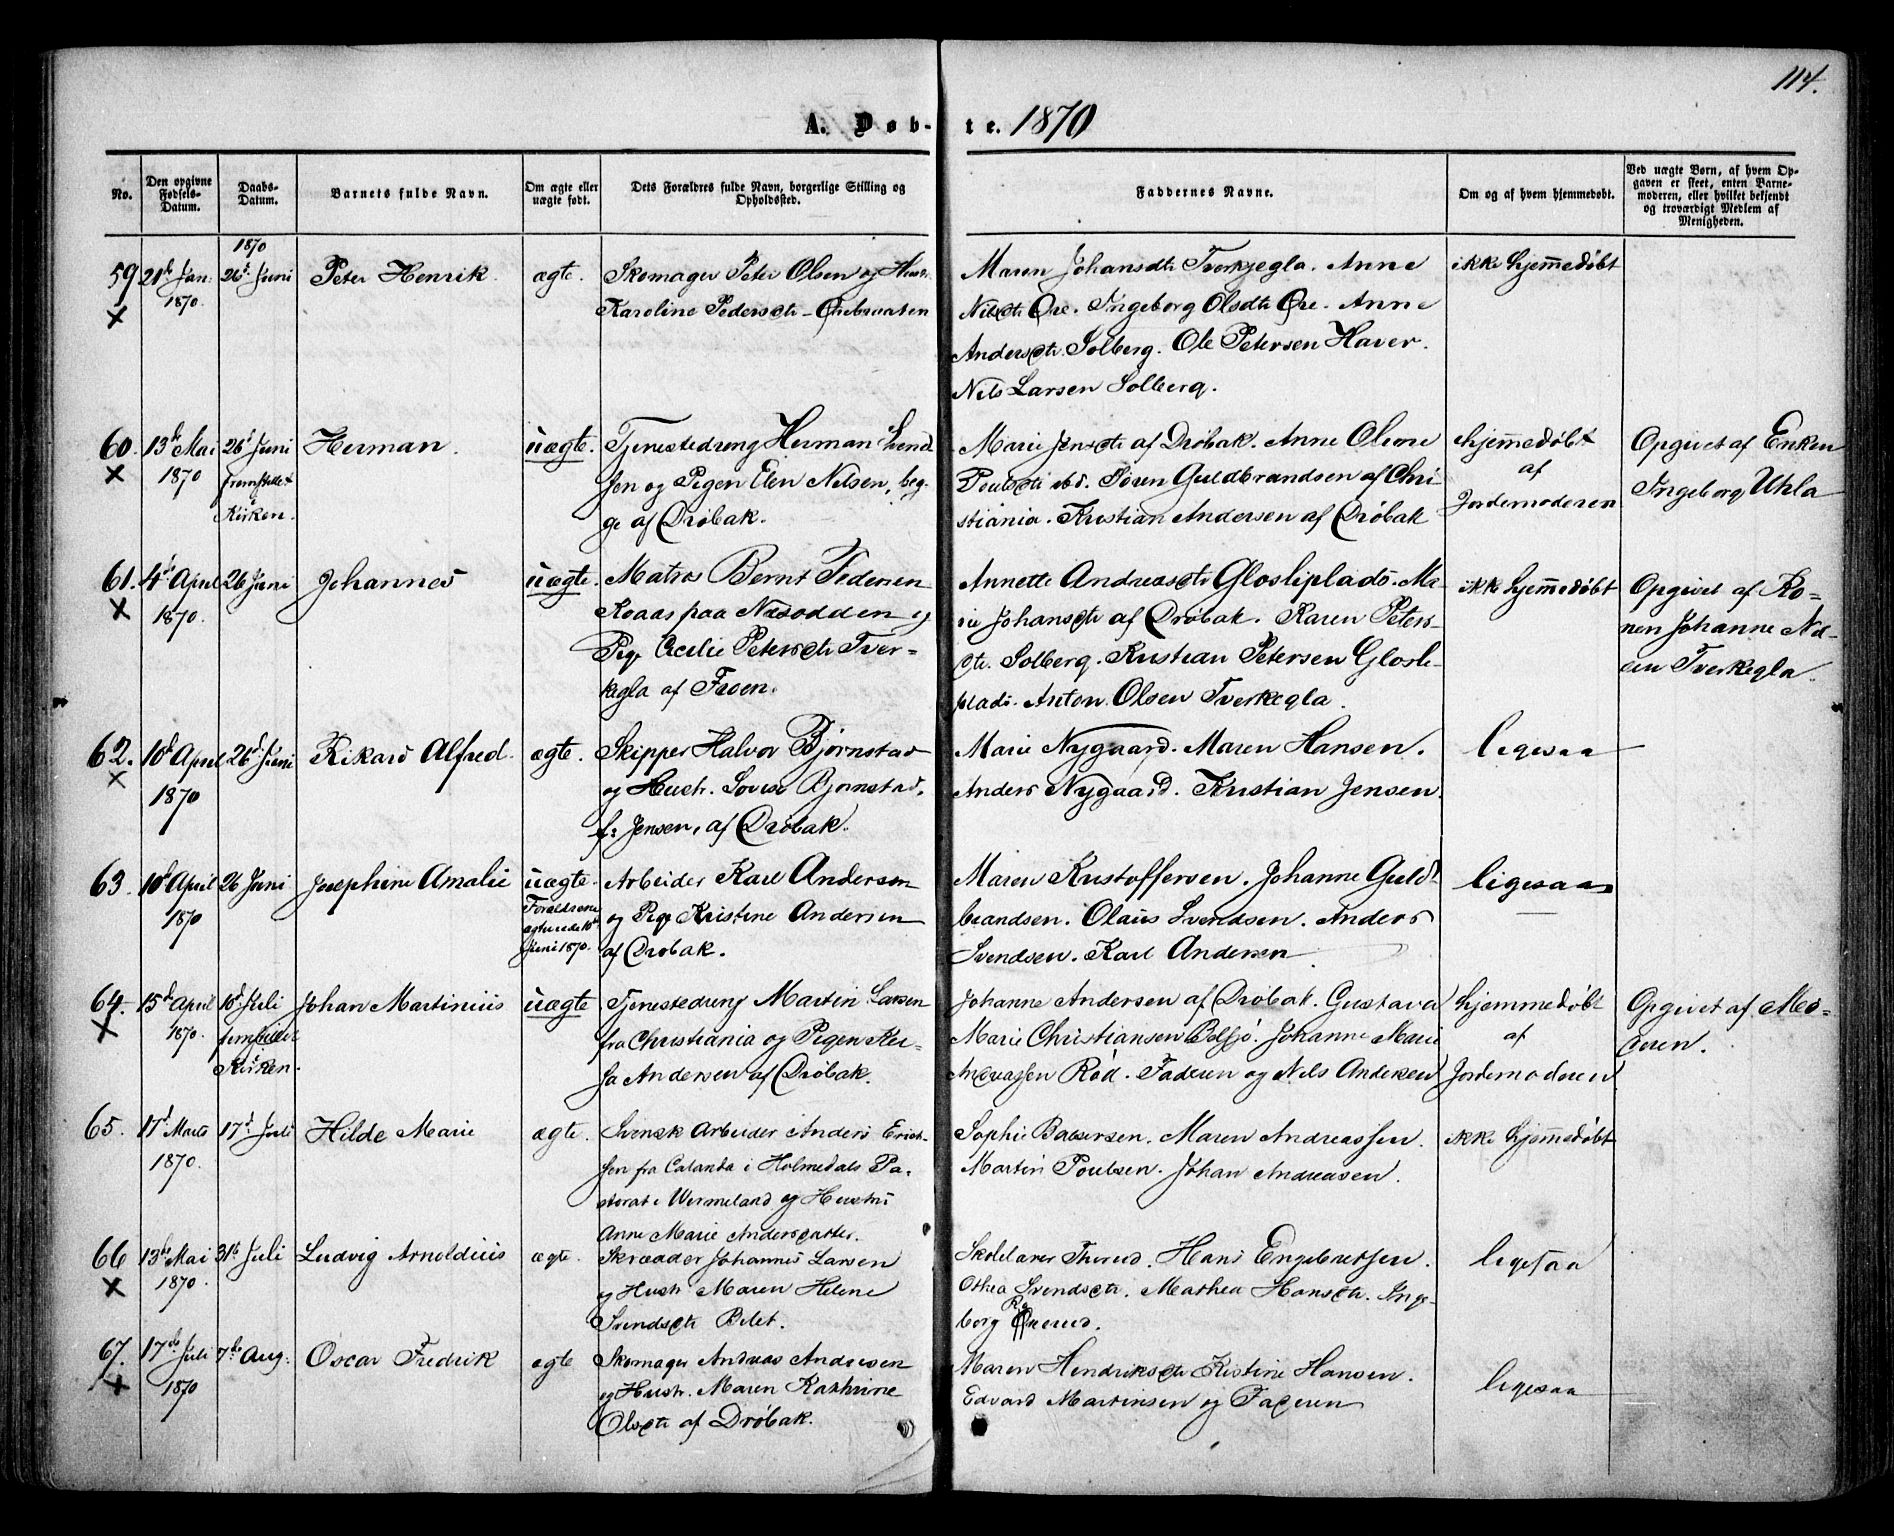 114.
A. Døbte. 1870
No.
Den opgivne Fødsels-Datum.
Daabs-Datum.
Barnets fulde Navn.
Om ægte eller uægte født.
Dets Forældres fulde Navn, borgerlige Stilling og Opholdssted.
Faddernes Navne.
Om og af hvem hjemmedøbt.
Ved uægte Børn, af hvem Op-
gaven er skeet, enten Barne-
moderen, eller hvilket bekjendt
og troværdigt Medlem af
Menigheden.
1870
59 21de Jan. 26de Juni Peter Henrik. ægte. Skomager Peter Olsen og Hustr. Maren Johansdtr Tverkjegla. Anne ikke hjemmedøbt
X 1870. Karoline Pedersdtr - Nilsdtr Øre. Ingeborg Olsdtr Øre. Anne
Andersdtr. Solberg. Ole Petersen Haver.
Nils Larsen Solberg.
60. 13de Mai 26de Juni Herman. uægte. Tjenestedreng Herman Svend- Marie Jensdtr af Drøbak. Anne Oleone hjemmedøbt Opgivet af Enken
X 1870 fremstillet sen og Pigen Elen Nilsen, beg- Poulsdtr ibd. Søren Guldbrandsen af Chri- af Ingeborg Uhla
i Kirken. ge af Drøbak. stiania. Kristian Andersen af Drøbak Jordemoderen
61. 4de April 26 Juni Johannes uægte. Matros Bernt Pedersen Annette Andreasdtr Glosliplads. Ma- ikke hjemmedøbt Opgivet af Ko-
X 1870. Roaas paa Næsodden og rie Johansdtr af Drøbak. Karen Peters- nen Johanne Nil-
Pige Cecilie Petersdtr Tver- dtr. Solberg. Kristian Petersen Glosli- sen Tverkegla.
kegla af Froen. plads. Anton Olsen Tverkegla.
62. 10de April 26de Juni Rikard Alfred. ægte. Skipper Halvor Bjørnstad Marie Nygaard. Maren Hansen. ligesaa
X 1870 og Hustr. Lovise Bjørnstad, Anders Nygaard. Kristian Jensen.
f: Jensen, af Drøbak.
63. 10de April 26 Juni Josephine Amalie uægte. Arbeider Karl Andersen Maren Kristoffersen. Johanne Guld- ligesaa
1870 Forældrene og Pige Kristine Andersen brandsen. Olaus Svendsen. Anders
ægteviede 10de af Drøbak. Svendsen. Karl Andersen
Juni 1870.
64. 15de April 10de Juli Johan Martinius uægte Tjenestedreng Martin Larsen Johanne Andersen af Drøbak. Gustava hjemmedøbt Opgivet af Mo-
X 1870. fremstillet fra Christiania og Pigen Ker- Marie Christiansen Bølsjø. Johanne Marie af deren.
i Kirken. sa Andersen af Drøbak. Andreassen Rød. Faderen og Nils Andersen Jordemoderen
65. 17de Marts 17de Juli Hilde Marie ægte. Svensk Arbeider Anders Erich- Sophie Maren Andreassen. ikke hjemmedøbt
1870. sen fra i Holmedals Pa- Martin Poulsen. Johan Andreasen.
storat i Wermeland og Hustru
Anne Marie Andersdatter.
66 13de Mai 31te Juli Ludvig Arnoldius ægte. Skrædder Johannes Larsen Skolelærer Therud. Hans Engebretsen. ligesaa
X 1870. og Hustr. Maren Helene Othea Svendsdtr. Mathea Hansdtr. Inge-
Svendsdtr Belet. borg
67. 17de Juli 7de Aug. Oscar Fredrik ægte Skomager Andreas Andresen Maren Hendriksdtr Kistine Hansen. ligesaa
X 1870 og Hustr. Maren Kathrine Edvard Martinsen og Faderen
Olsdtr af Drøbak.